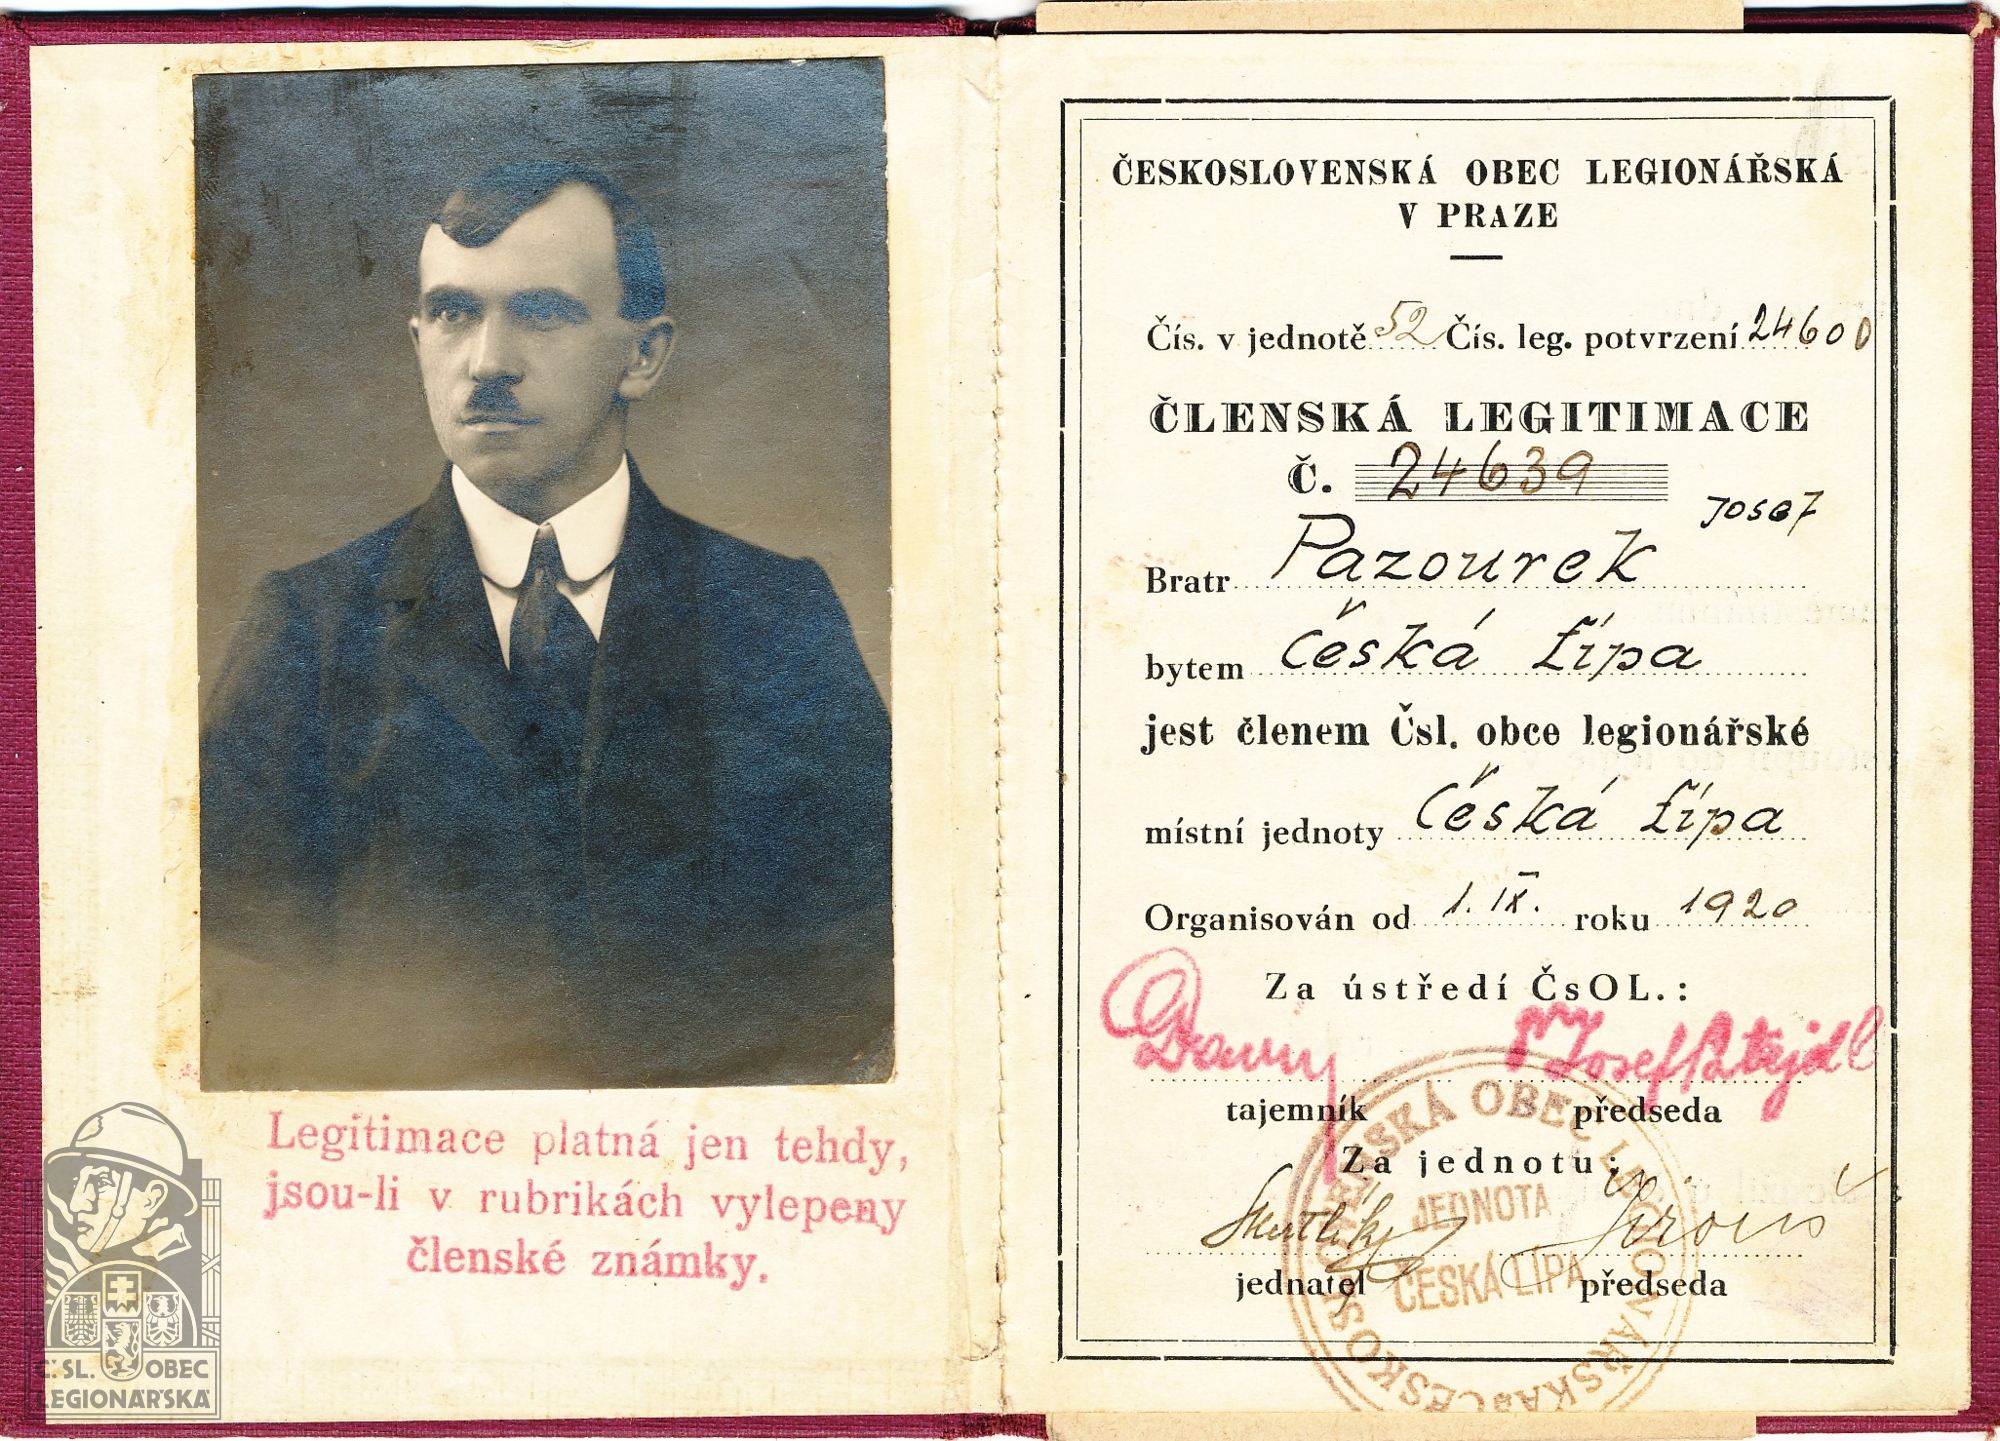 Legitimace platná jen tehdy,
jsou-li v rubrikách vylepeny
členské známky.
Č.SL. OBEC
LEGIONÁŘSKÁ
ČESKOSLOVENSKÁ OBEC LEGIONÁŘSKÁ
V PRAZE
Čís. v jednotě 52 Čís. leg. potvrzení 24600
ČLENSKÁ LEGITIMACE
Č. 24639
Josef
Bratr Pazourek
bytem Česká Lípa
jest členem Čsl. obce legionářské
místní jednoty Česká Lípa
Organisován od 1. IX. roku 1920
Za ústředí ČsOL.:
Josef Patejdl
tajemník předseda
Za jednotu:
jednatel předseda
ČESKOSLOVENSKÁ OBEC LEGIONÁŘSKÁ
JEDNOTA
ČESKÁ LÍPA